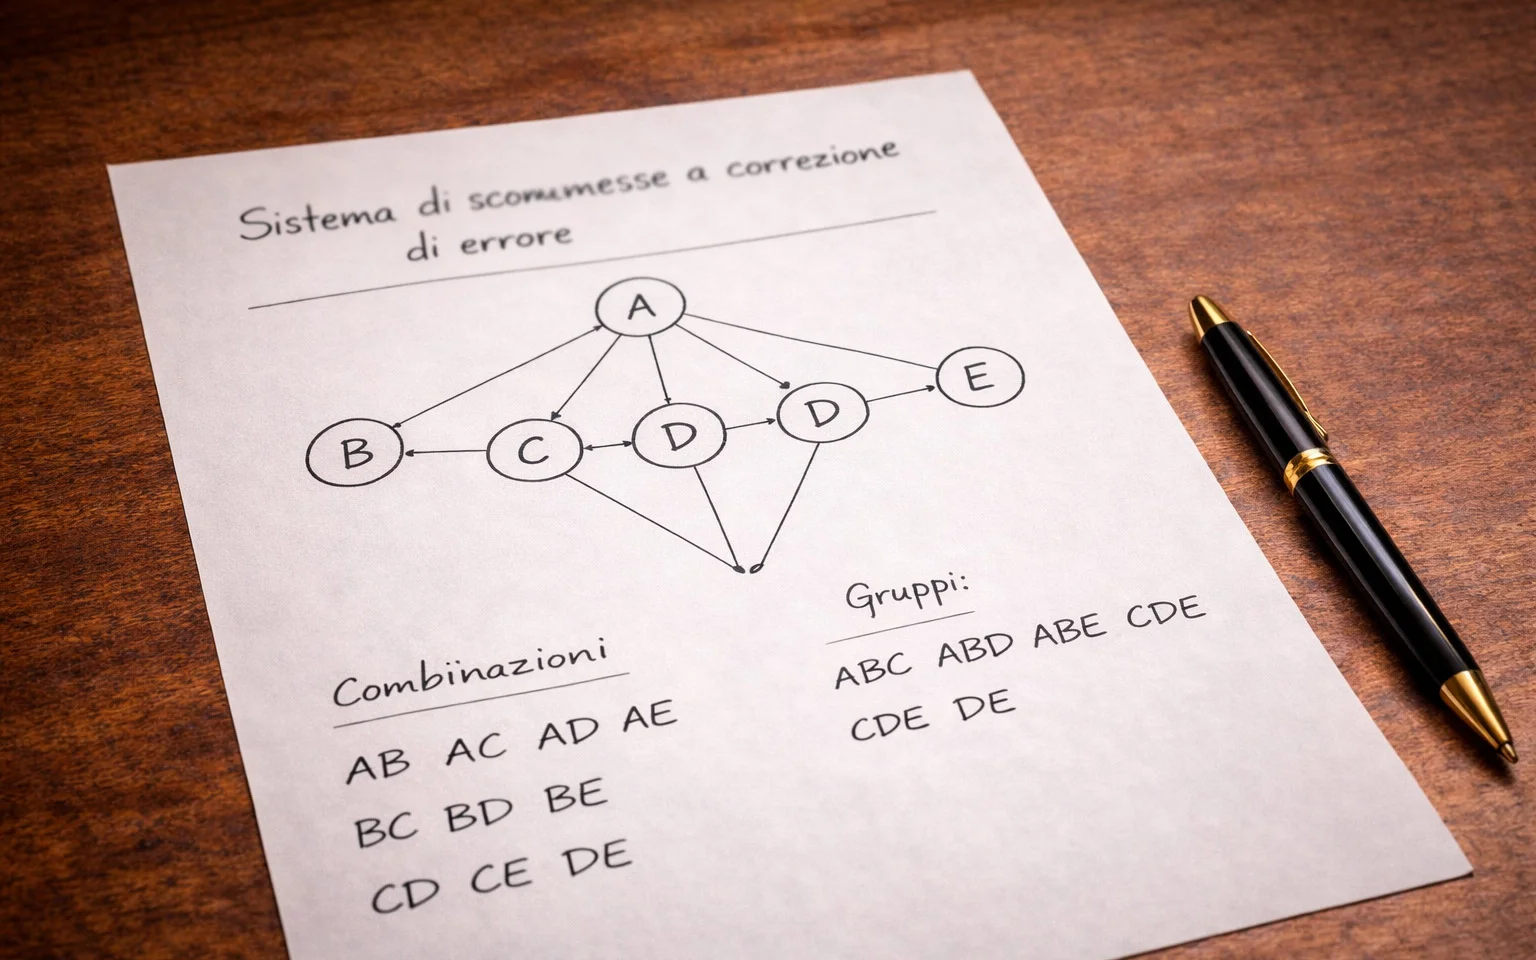 Sistema di scommesse a correzione
di errore
A
B
C
D
D
E
Gruppi:
ABC ABD ABE CDE
CDE DE
Combinazioni
AB AC AD AE
BC BD BE
CD CE DE